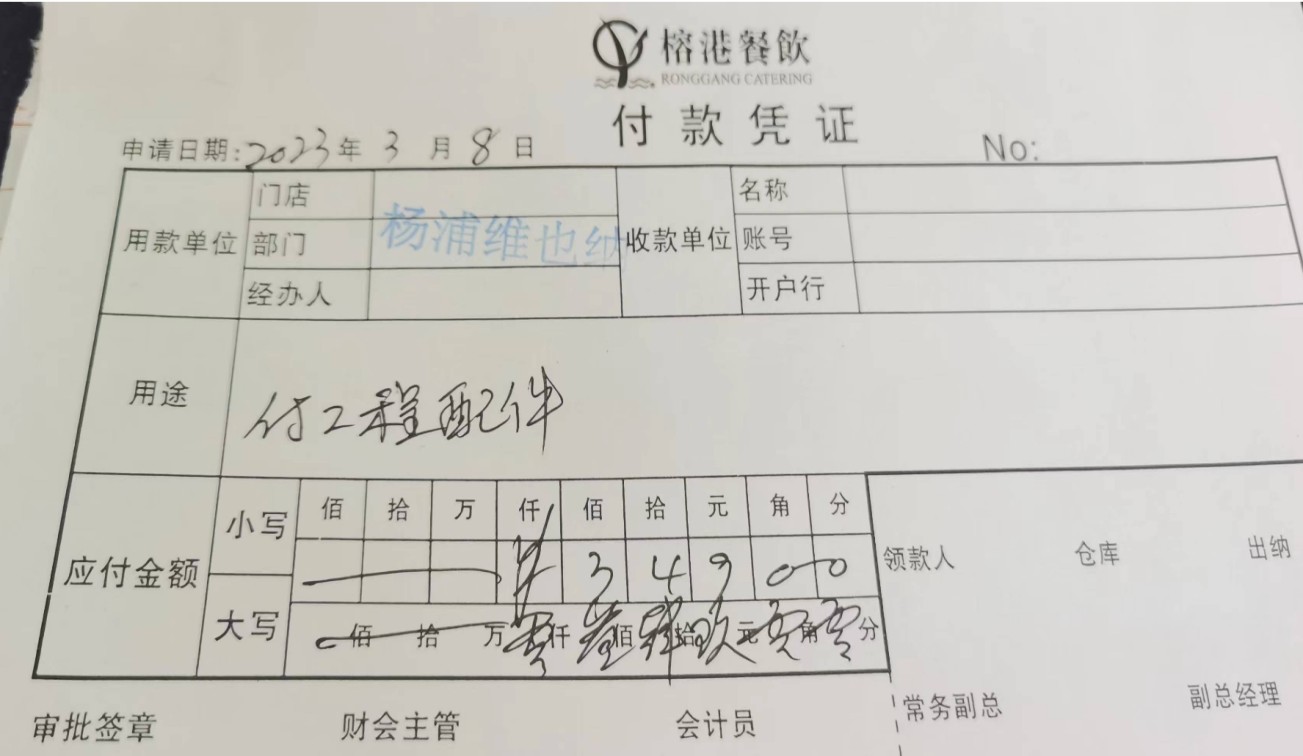 榕港餐飲
RONGGANG CATERING
付款凭证
申请日期:2023年3月8日 No:
用款单位 门店 收款单位 名称
部门 杨浦维也纳 账号
经办人 开户行
用途 付工程配件
应付金额 小写 佰 拾 万 仟 佰 拾 元 角 分
¥ 3 4 9 0 0
领款人 仓库 出纳
大写 佰 拾 万 零仟 叁佰 肆拾 玖元 零角 零分
审批签章 财会主管 会计员 常务副总 副总经理